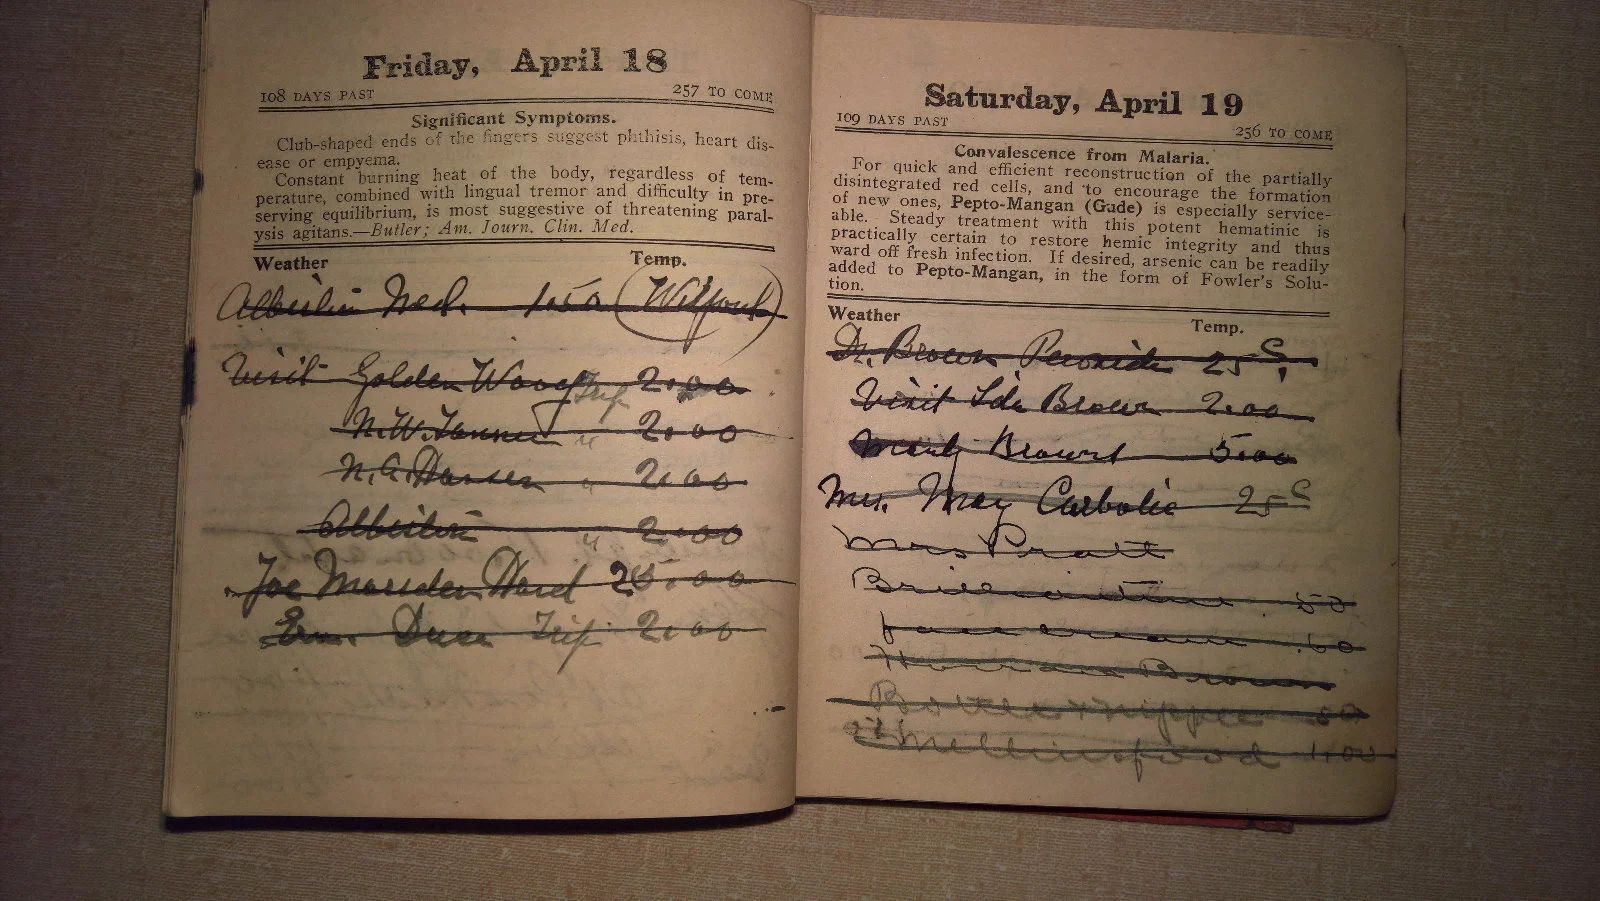 Friday, April 18
108 DAYS PAST 257 TO COME
Significant Symptoms.
Club-shaped ends of the fingers suggest phthisis, heart dis-
ease or empyema.
Constant burning heat of the body, regardless of tem-
perature, combined with lingual tremor and difficulty in pre-
serving equilibrium, is most suggestive of threatening paral-
ysis agitans.—Butler; Am. Journ. Clin. Med.
Weather Temp.
Med. 1.50
Visit Golden Trip 2.00
N.W. " 2.00
" 2.00
" 2.00
Joe Marsden 25.00
Trip 2.00
Saturday, April 19
109 DAYS PAST 256 TO COME
Convalescence from Malaria.
For quick and efficient reconstruction of the partially
disintegrated red cells, and to encourage the formation
of new ones, Pepto-Mangan (Gude) is especially service-
able. Steady treatment with this potent hematinic is
practically certain to restore hemic integrity and thus
ward off fresh infection. If desired, arsenic can be readily
added to Pepto-Mangan, in the form of Fowler's Solu-
tion.
Weather Temp.
Dr. Brown Peroxide 25 c
Visit Ida Brown 2.00
Brown 5.00
Mrs. May Carbolic 25 c
Mrs Pratt
Brilliantine 50
face cream .60
Brown
Bottle & nipple
Mellins food 1.00